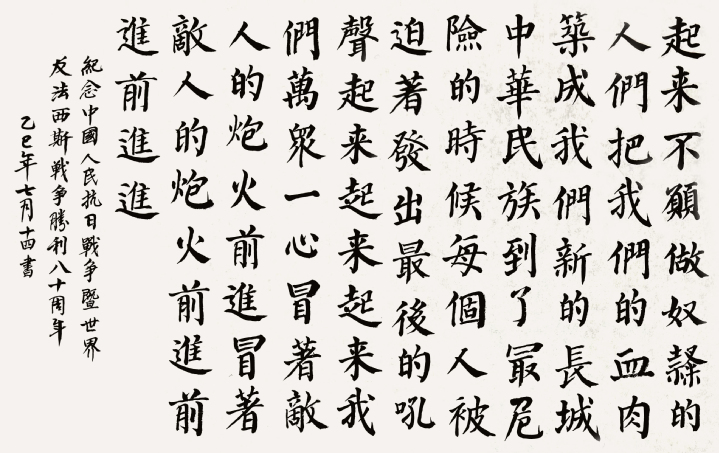 起来不願做奴隸的
人們把我們的血肉
築成我們新的長城
中華民族到了最危
險的時候每個人被
迫著發出最後的吼
聲起来起来起来我
們萬眾一心冒著敵
人的炮火前進冒著
敵人的炮火前進前
進前進進
紀念中國人民抗日戰争暨世界
反法西斯戰争勝利八十周年
乙巳年七月十四書